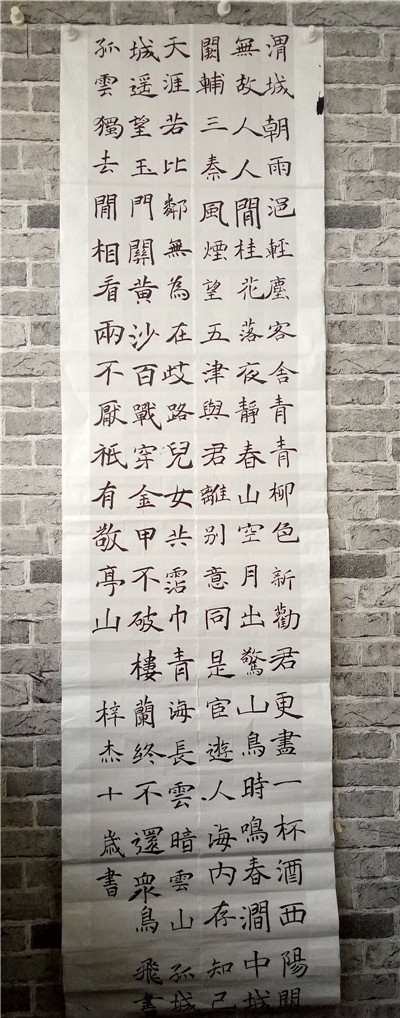 渭城朝雨浥輕塵客舍青青柳色新勸君更盡一杯酒西陽
無故人人閒桂花落夜靜春山空月出驚山鳥時鳴春澗中城
闕輔三秦風煙望五津與君離别意同是宦遊人海内存知己
天涯若比鄰無為在歧路兒女共霑巾青海長雲暗雲山孤城
城遥望玉門關黄沙百戰穿金甲不破樓蘭終不還衆鳥飛盡
孤雲獨去閒相看兩不厭祗有敬亭山
梓杰十歲書